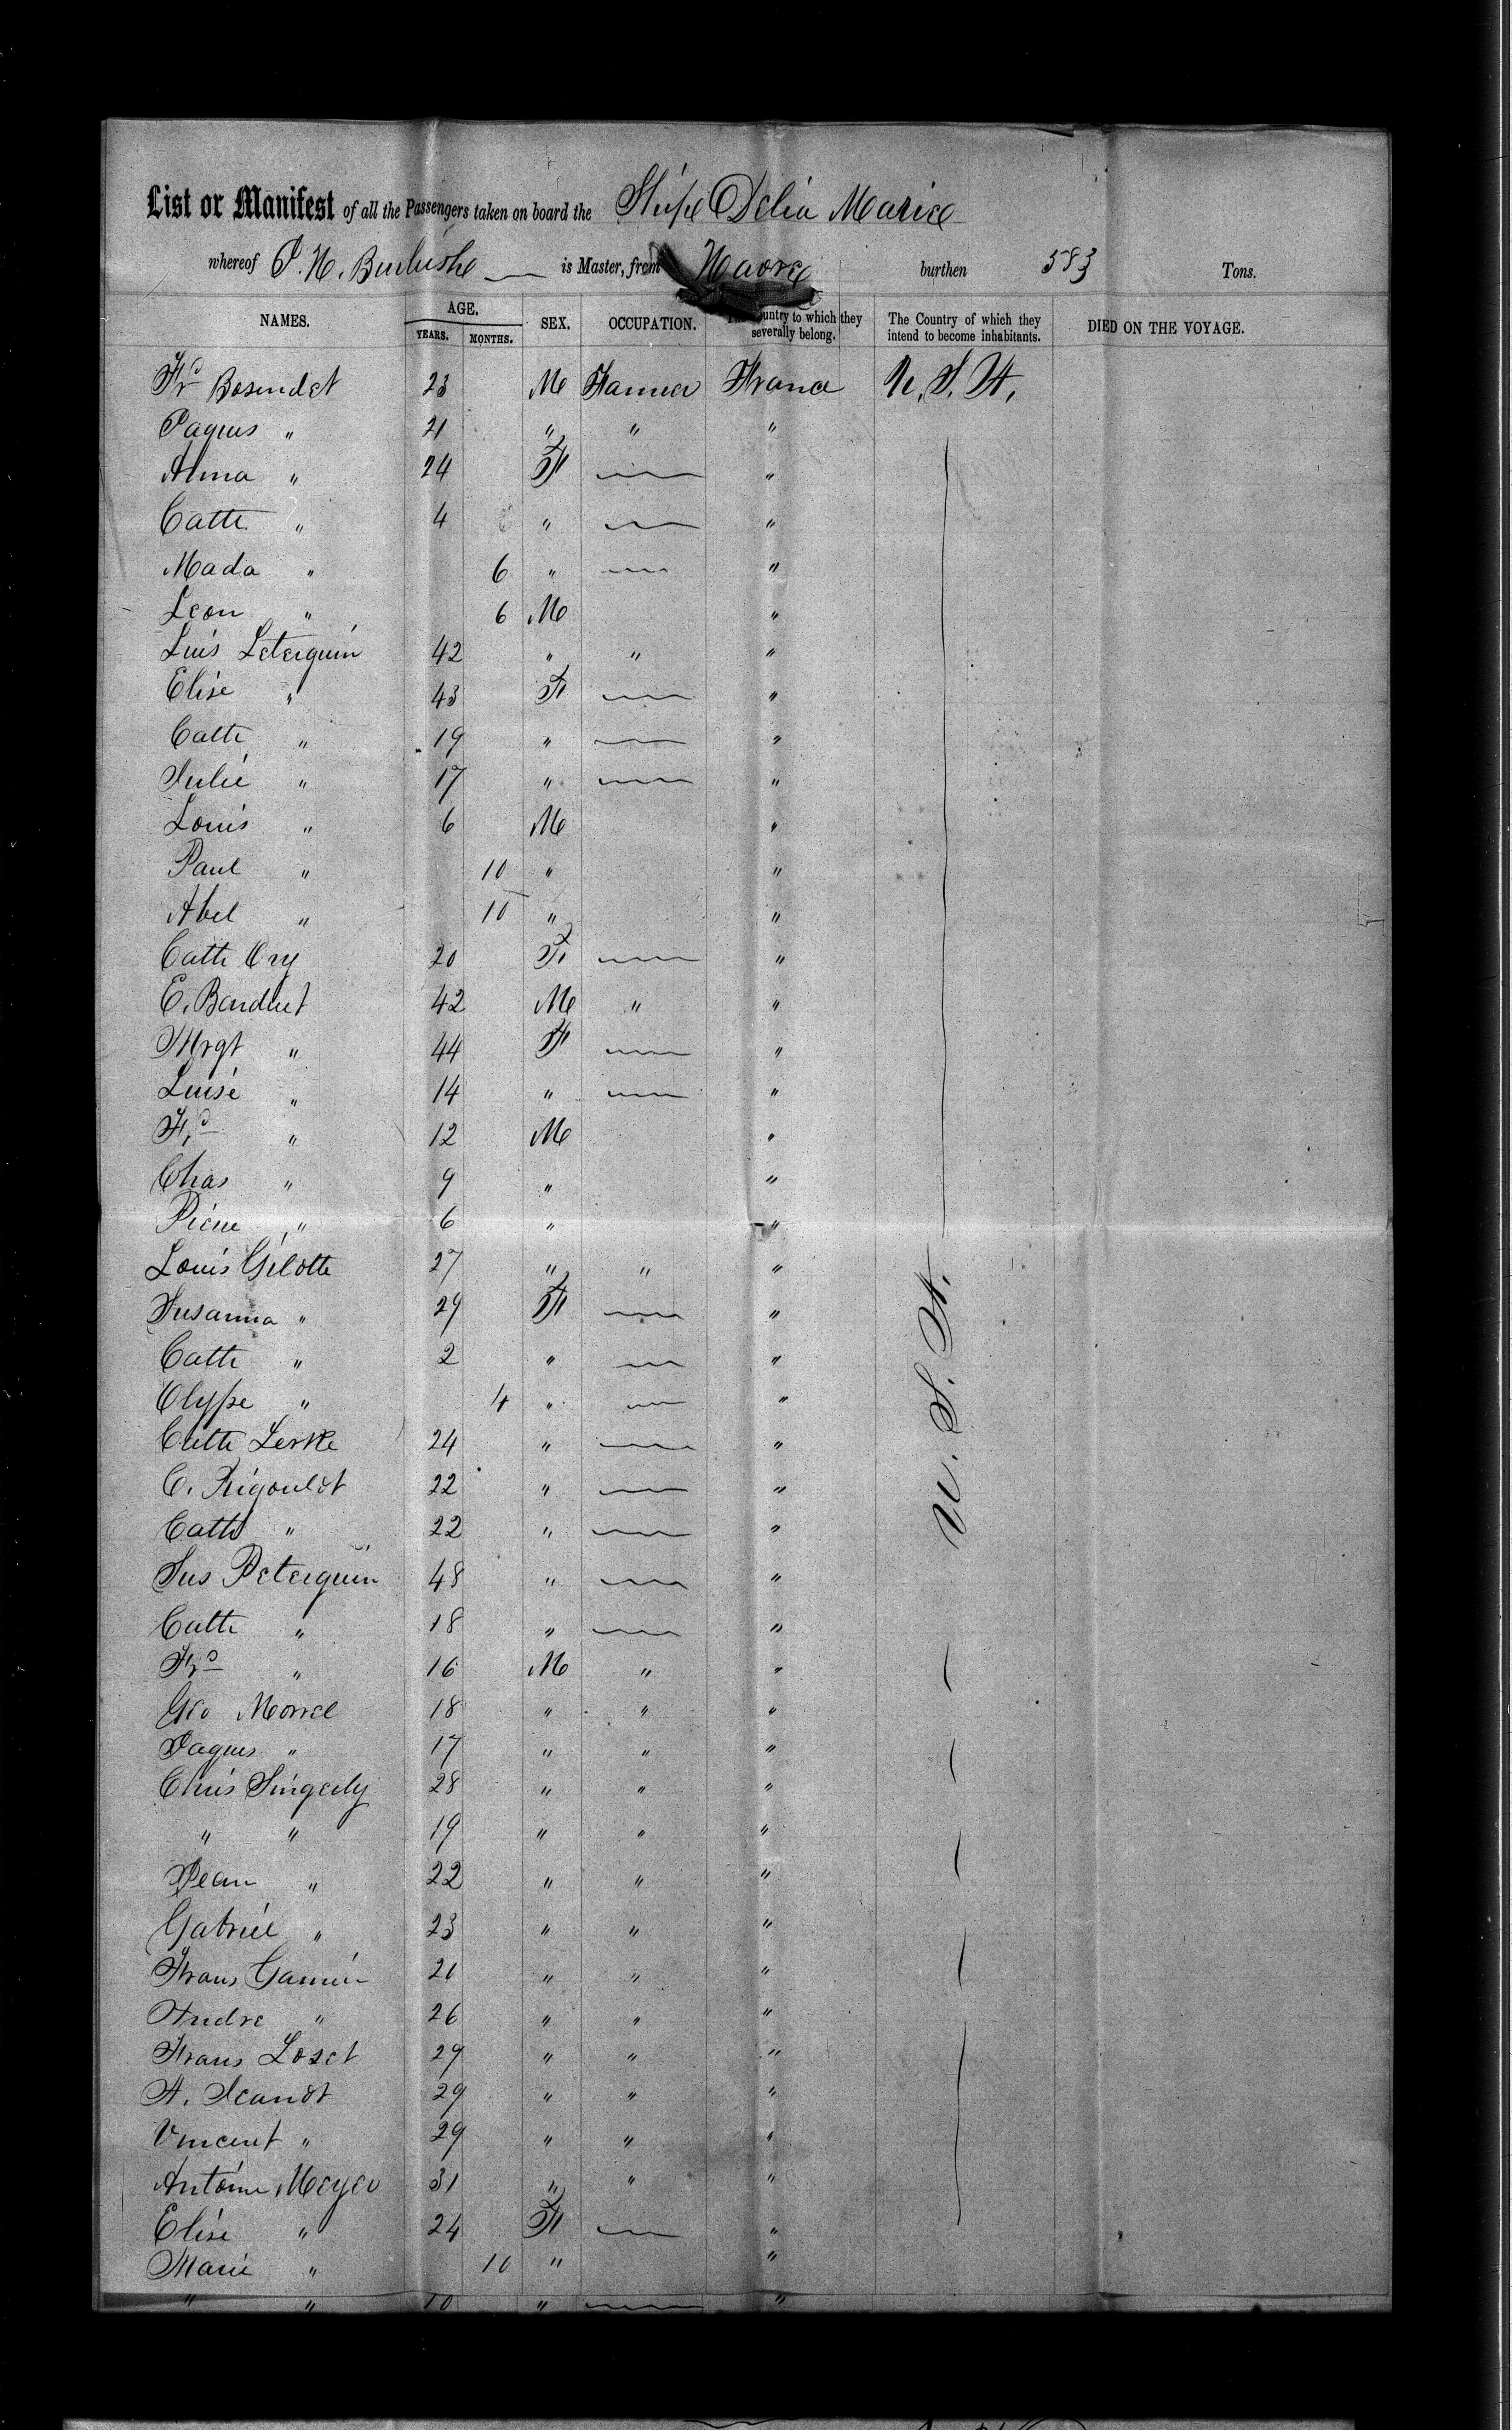 List or Manifest of all the Passengers taken on board the Ship Delia Maria
whereof P. N. is Master, from Havre burthen 583 Tons.
NAMES. AGE. YEARS. MONTHS. SEX. OCCUPATION. The Country to which they severally belong. The Country of which they intend to become inhabitants. DIED ON THE VOYAGE.
Frs Bosendet 23 M Farmer France U. S. A.
Jaques " 21 " " "
Anna " 24 F "
Cathe " 4 " "
Mada " 6 " "
Leon " 6 M "
Luis Leterquin 42 " " "
Elise " 43 F "
Cathe " 19 " "
Julie " 17 " "
Louis " 6 M "
Paul " 10 " "
Abel " 10 " "
Cathe Ory 20 F "
C. 42 M " "
Mrgt " 44 F "
Luise " 14 " "
Frs " 12 M "
Chas " 9 " "
Piere " 6 " "
Louis Gilotte 27 " " "
Susanna " 29 F "
Cathe " 2 " "
Olypse " 4 " "
Cathe Leske 24 " "
C. Rigoulot 22 " "
Cathe " 22 " "
Sus Peterquin 48 " "
Cathe " 18 " "
Frs " 16 M " "
Geo Morrel 18 " " "
Jaques " 17 " " "
Chris Singerly 28 " " "
" " 19 " " "
Jean " 22 " " "
Gabriel " 23 " " "
Frans 21 " " "
Andre " 26 " " "
Frans Loset 29 " " "
A. Jeandt 29 " " "
Vincent " 29 " " "
Antoine Meyer 31 " " "
Elise " 24 F "
Marie " 10 " "
" " 10 " "
U. S. A.